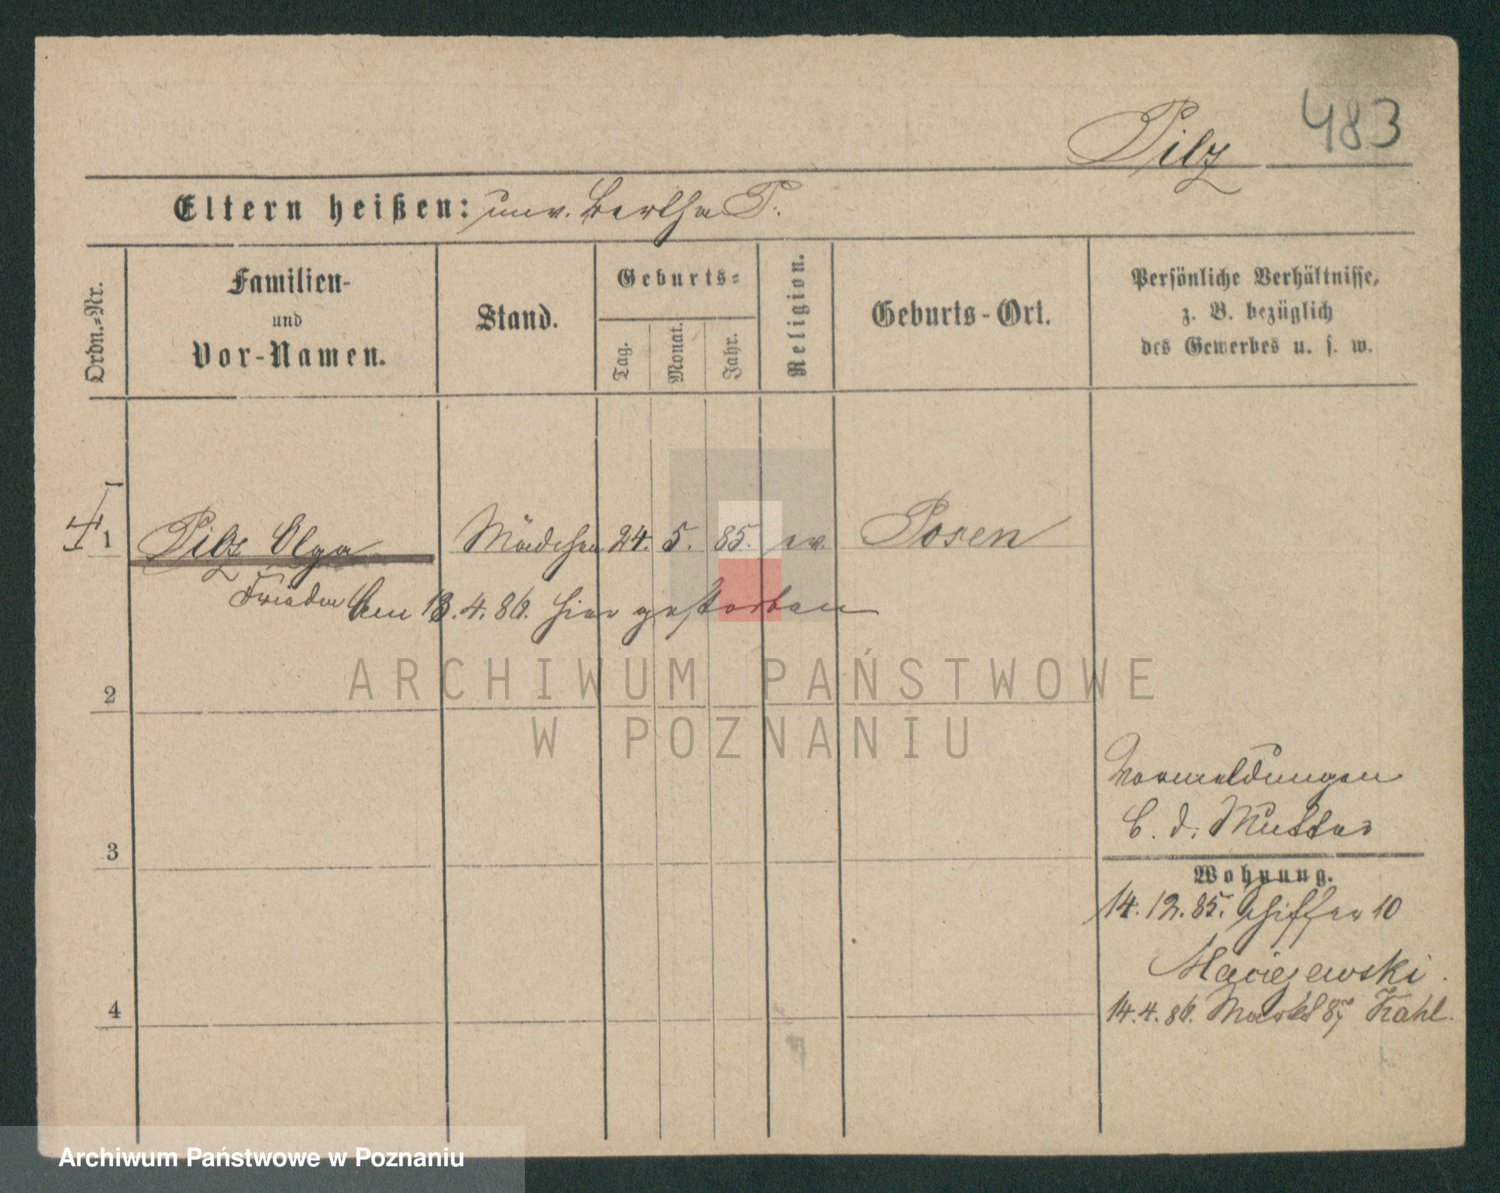 483
Pilz
Eltern heißen: unv. Bertha P.
Ordn.-Nr.
Familien-
und
Vor-Namen.
Stand.
Geburts-
Tag.
Monat.
Jahr.
Religion.
Geburts-Ort.
Persönliche Verhältnisse,
z. B. bezüglich
des Gewerbes u. s. w.
1 Pilz Olga Mädchen 24. 5. 85. ev. Posen
am 13.4.86. hier gestorben
ARCHIWUM PAŃSTWOWE
W POZNANIU
2
Vormeldungen
b. d. Mutter
3
Wohnung.
14.12.85. Schiffer 10
Maciejewski.
14.4.86. Markt 87 Kahl.
4
Archiwum Państwowe w Poznaniu